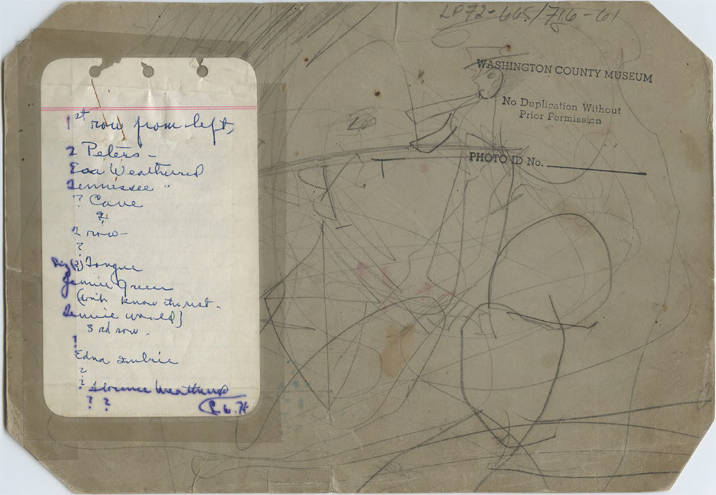 LP72-665/716-61
WASHINGTON COUNTY MUSEUM
No Duplication Without
Prior Permission
PHOTO ID No.
1st row from left,
2 Peters -
Eda Weathered
Tennessee "
? Cave
2 row -
?
Tongue
Jennie Green
(with know the rest.
3rd row.
?
Edna Imbrie
?
? Florence Weathered
? ?